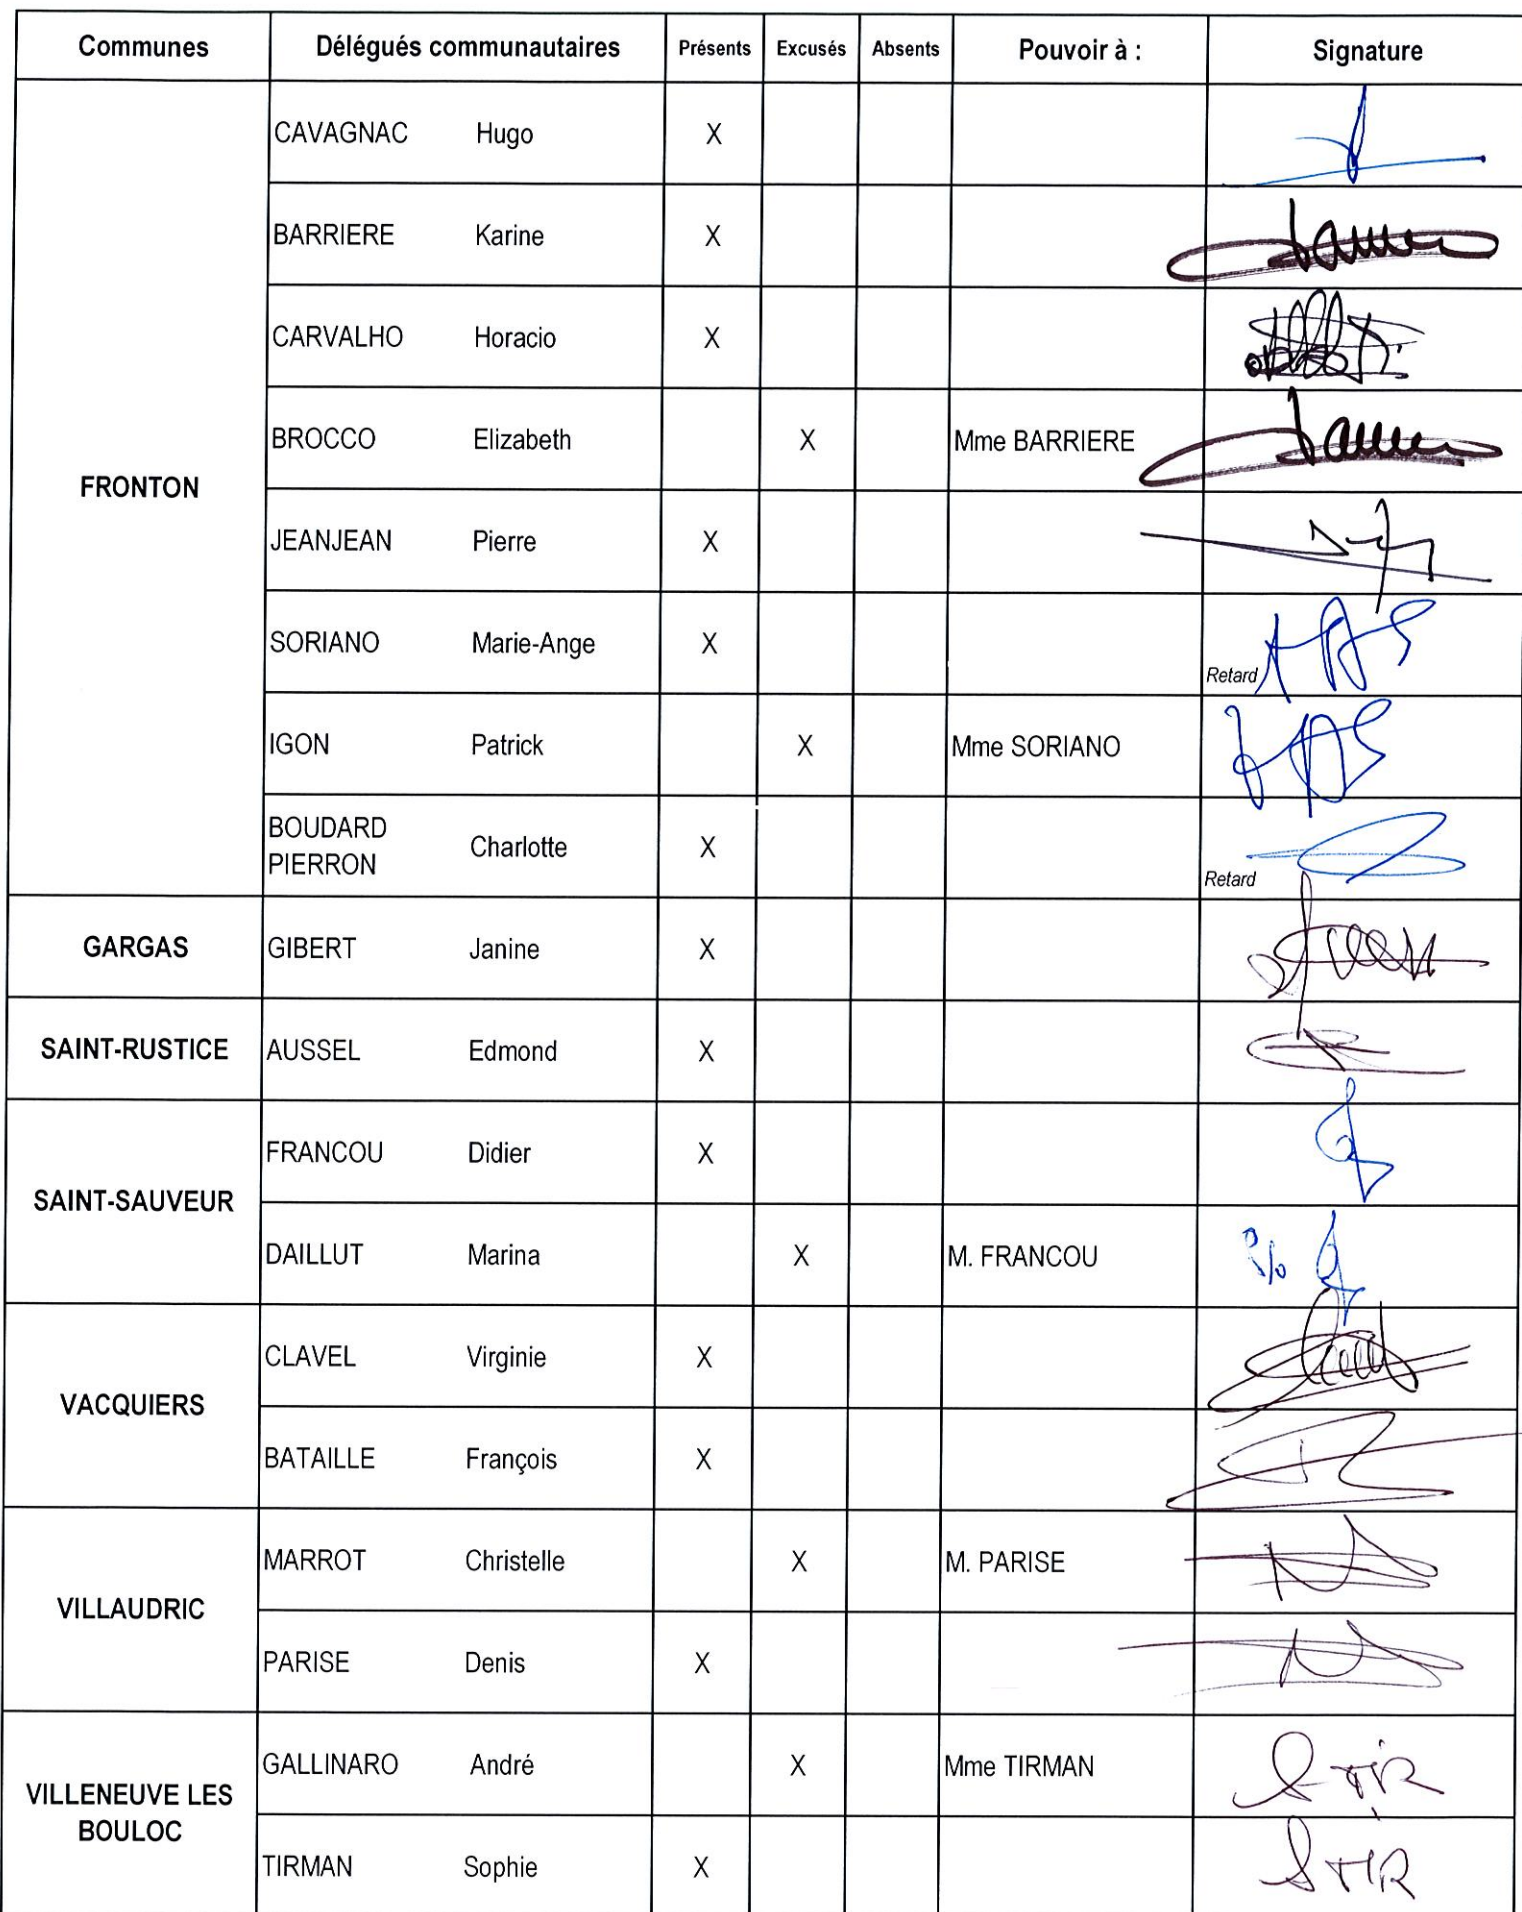 Communes Délégués communautaires Présents Excusés Absents Pouvoir à : Signature
FRONTON
CAVAGNAC Hugo X
BARRIERE Karine X
CARVALHO Horacio X
BROCCO Elizabeth X Mme BARRIERE
JEANJEAN Pierre X
SORIANO Marie-Ange X Retard
IGON Patrick X Mme SORIANO
BOUDARD
PIERRON Charlotte X Retard
GARGAS GIBERT Janine X
SAINT-RUSTICE AUSSEL Edmond X
SAINT-SAUVEUR
FRANCOU Didier X
DAILLUT Marina X M. FRANCOU
VACQUIERS
CLAVEL Virginie X
BATAILLE François X
VILLAUDRIC
MARROT Christelle X M. PARISE
PARISE Denis X
VILLENEUVE LES
BOULOC
GALLINARO André X Mme TIRMAN
TIRMAN Sophie X